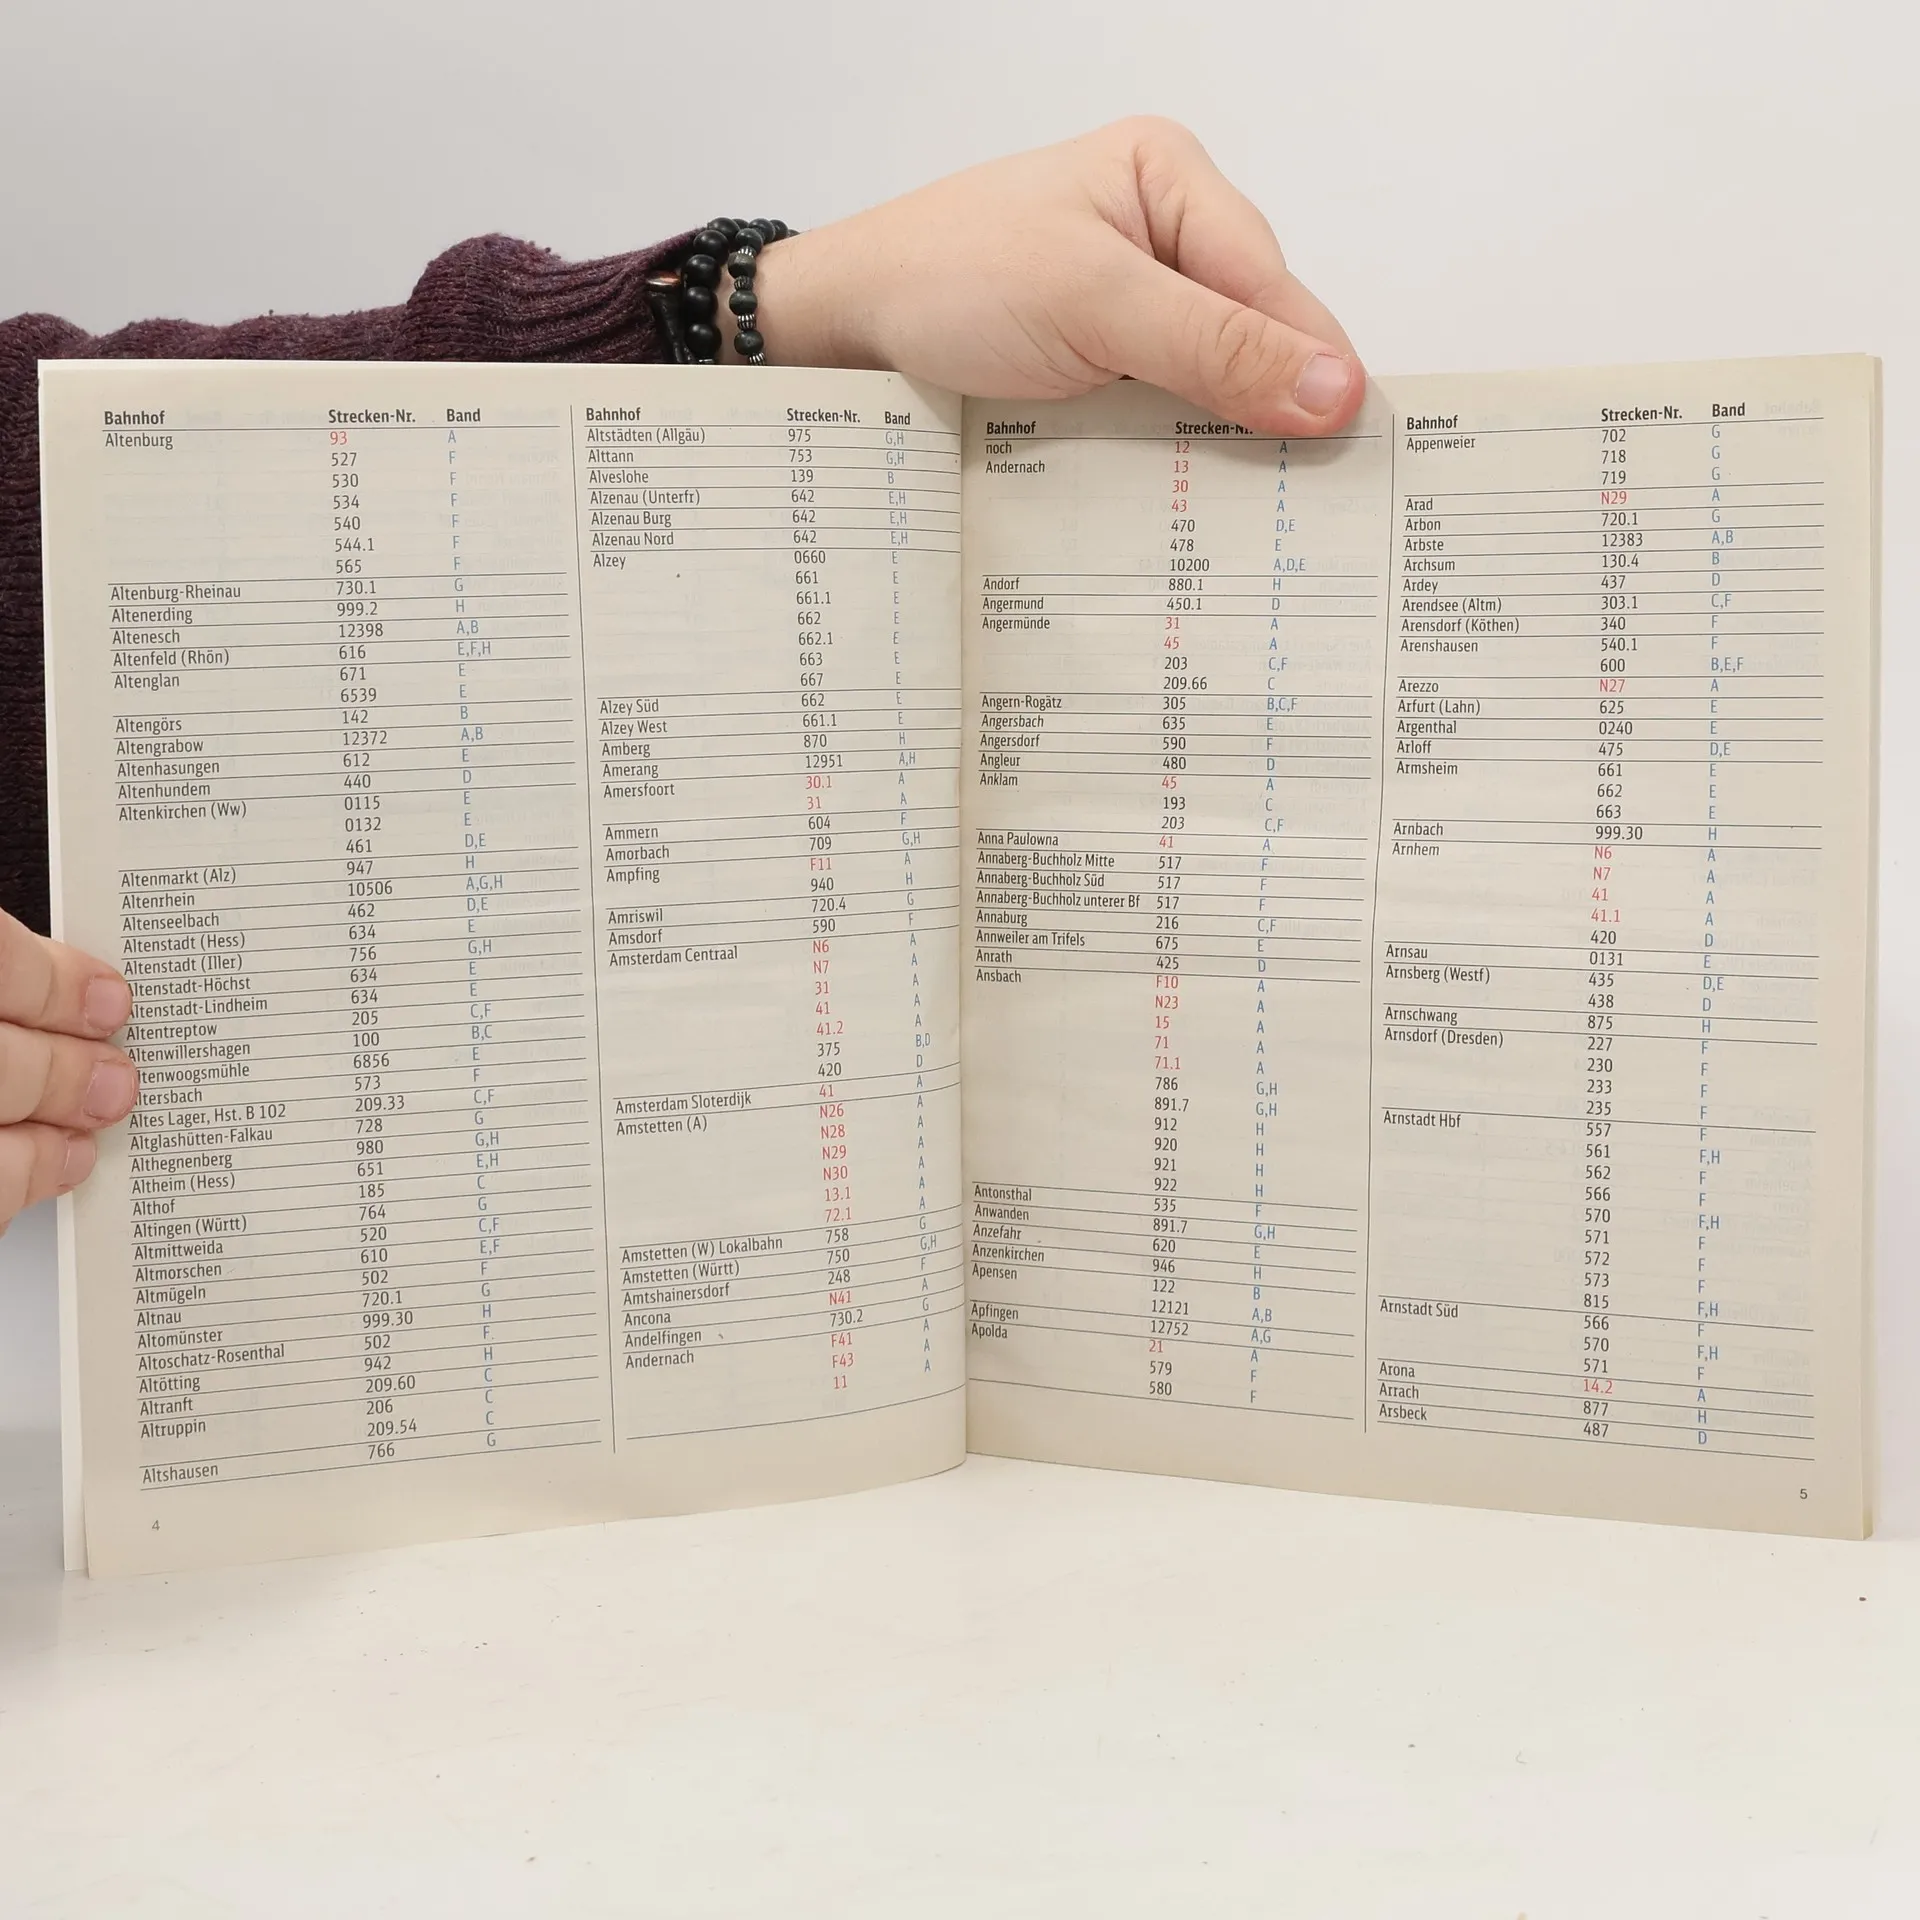 Bahnhof Strecken-Nr. Band
Altenburg 93 A
527 F
530 F
534 F
540 F
544.1 F
565 F
Altenburg-Rheinau 730.1 G
Altenerding 999.2 H
Altenesch 12398 A,B
Altenfeld (Rhön) 616 E,F,H
Altenglan 671 E
6539 E
Altengörs 142 B
Altengrabow 12372 A,B
Altenhasungen 612 E
Altenhundem 440 D
Altenkirchen (Ww) 0115 E
0132 E
461 D,E
Altenmarkt (Alz) 947 H
Altenrhein 10506 A,G,H
Altenseelbach 462 D,E
Altenstadt (Hess) 634 E
Altenstadt (Iller) 756 G,H
Altenstadt-Höchst 634 E
Altenstadt-Lindheim 634 E
Altentreptow 205 C,F
Altenwillershagen 100 B,C
ltenwoogsmühle 6856 E
ltersbach 573 F
Altes Lager, Hst. B 102 209.33 C,F
Altglashütten-Falkau 728 G
Althegnenberg 980 G,H
Altheim (Hess) 651 E,H
Althof 185 C
Altingen (Württ) 764 G
Altmittweida 520 C,F
Altmorschen 610 E,F
Altmügeln 502 F
Altnau 720.1 G
Altomünster 999.30 H
Altoschatz-Rosenthal 502 F
Altötting 942 H
Altranft 209.60 C
Altruppin 206 C
209.54 C
Altshausen 766 G
4
Bahnhof Strecken-Nr. Band
Altstädten (Allgäu) 975 G,H
Alttann 753 G,H
Alveslohe 139 B
Alzenau (Unterfr) 642 E,H
Alzenau Burg 642 E,H
Alzenau Nord 642 E,H
Alzey 0660 E
661 E
661.1 E
662 E
662.1 E
663 E
667 E
Alzey Süd 662 E
Alzey West 661.1 E
Amberg 870 H
Amerang 12951 A,H
Amersfoort 30.1 A
31 A
Ammern 604 F
Amorbach 709 G,H
Ampfing F11 A
940 H
Amriswil 720.4 G
Amsdorf 590 F
Amsterdam Centraal N6 A
N7 A
31 A
41 A
41.2 A
375 B,D
420 D
Amsterdam Sloterdijk 41 A
Amstetten (A) N26 A
N28 A
N29 A
N30 A
13.1 A
72.1 A
Amstetten (W) Lokalbahn 758 G
Amstetten (Württ) 750 G,H
Amtshainersdorf 248 F
Ancona N41 A
Andelfingen 730.2 G
Andernach F41 A
F43 A
11 A
Bahnhof Strecken-Nr.
noch 12 A
Andernach 13 A
30 A
43 A
470 D,E
478 E
10200 A,D,E
Andorf 880.1 H
Angermund 450.1 D
Angermünde 31 A
45 A
203 C,F
209.66 C
Angern-Rogätz 305 B,C,F
Angersbach 635 E
Angersdorf 590 F
Angleur 480 D
Anklam 45 A
193 C
203 C,F
Anna Paulowna 41 A
Annaberg-Buchholz Mitte 517 F
Annaberg-Buchholz Süd 517 F
Annaberg-Buchholz unterer Bf 517 F
Annaburg 216 C,F
Annweiler am Trifels 675 E
Anrath 425 D
Ansbach F10 A
N23 A
15 A
71 A
71.1 A
786 G,H
891.7 G,H
912 H
920 H
921 H
922 H
Antonsthal 535 F
Anwanden 891.7 G,H
Anzefahr 620 E
Anzenkirchen 946 H
Apensen 122 B
12121 A,B
Apfingen 12752 A,G
Apolda 21 A
579 F
580 F
Bahnhof Strecken-Nr. Band
Appenweier 702 G
718 G
719 G
Arad N29 A
Arbon 720.1 G
Arbste 12383 A,B
Archsum 130.4 B
Ardey 437 D
Arendsee (Altm) 303.1 C,F
Arensdorf (Köthen) 340 F
Arenshausen 540.1 F
600 B,E,F
Arezzo N27 A
Arfurt (Lahn) 625 E
Argenthal 0240 E
Arloff 475 D,E
Armsheim 661 E
662 E
663 E
Arnbach 999.30 H
Arnhem N6 A
N7 A
41 A
41.1 A
420 D
Arnsau 0131 E
Arnsberg (Westf) 435 D,E
438 D
Arnschwang 875 H
Arnsdorf (Dresden) 227 F
230 F
233 F
235 F
Arnstadt Hbf 557 F
561 F,H
562 F
566 F
570 F,H
571 F
572 F
573 F
815 F,H
Arnstadt Süd 566 F
570 F,H
571 F
Arona 14.2 A
Arrach 877 H
Arsbeck 487 D
5